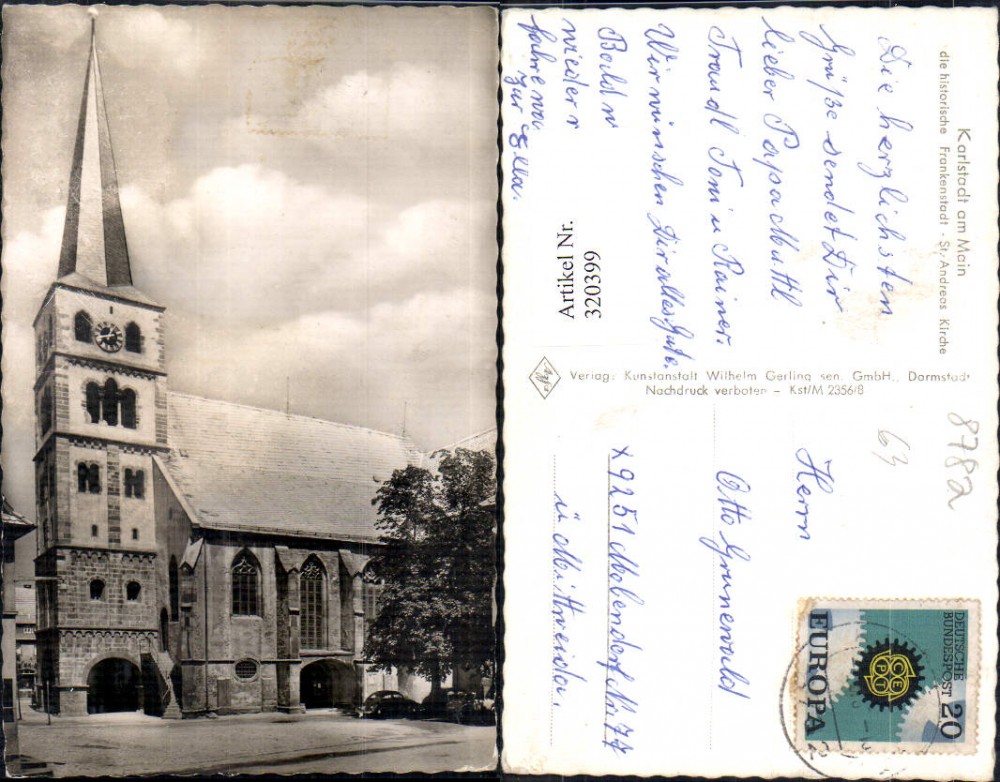 Karlstadt am Main
die historische Frankenstadt · St. Andreas Kirche
Die herzlichsten
Grüße sendet Dir.
lieber Papa Mattl
Traudl Toni u Rainer.
Wir wünschen Dir alles Gute.
Bald
wieder
fahre
zur Ella.
Artikel Nr.
320399
Agfa
Verlag: Kunstanstalt Wilhelm Gerling sen. GmbH., Darmstadt
Nachdruck verboten – Kst/M 2356/8
8782
63
Herrn
Otto Grunewald
x 9251 Mobendorf Nr 77
ü. Mittweida.
DEUTSCHE
BUNDESPOST 20
CEPT
EUROPA